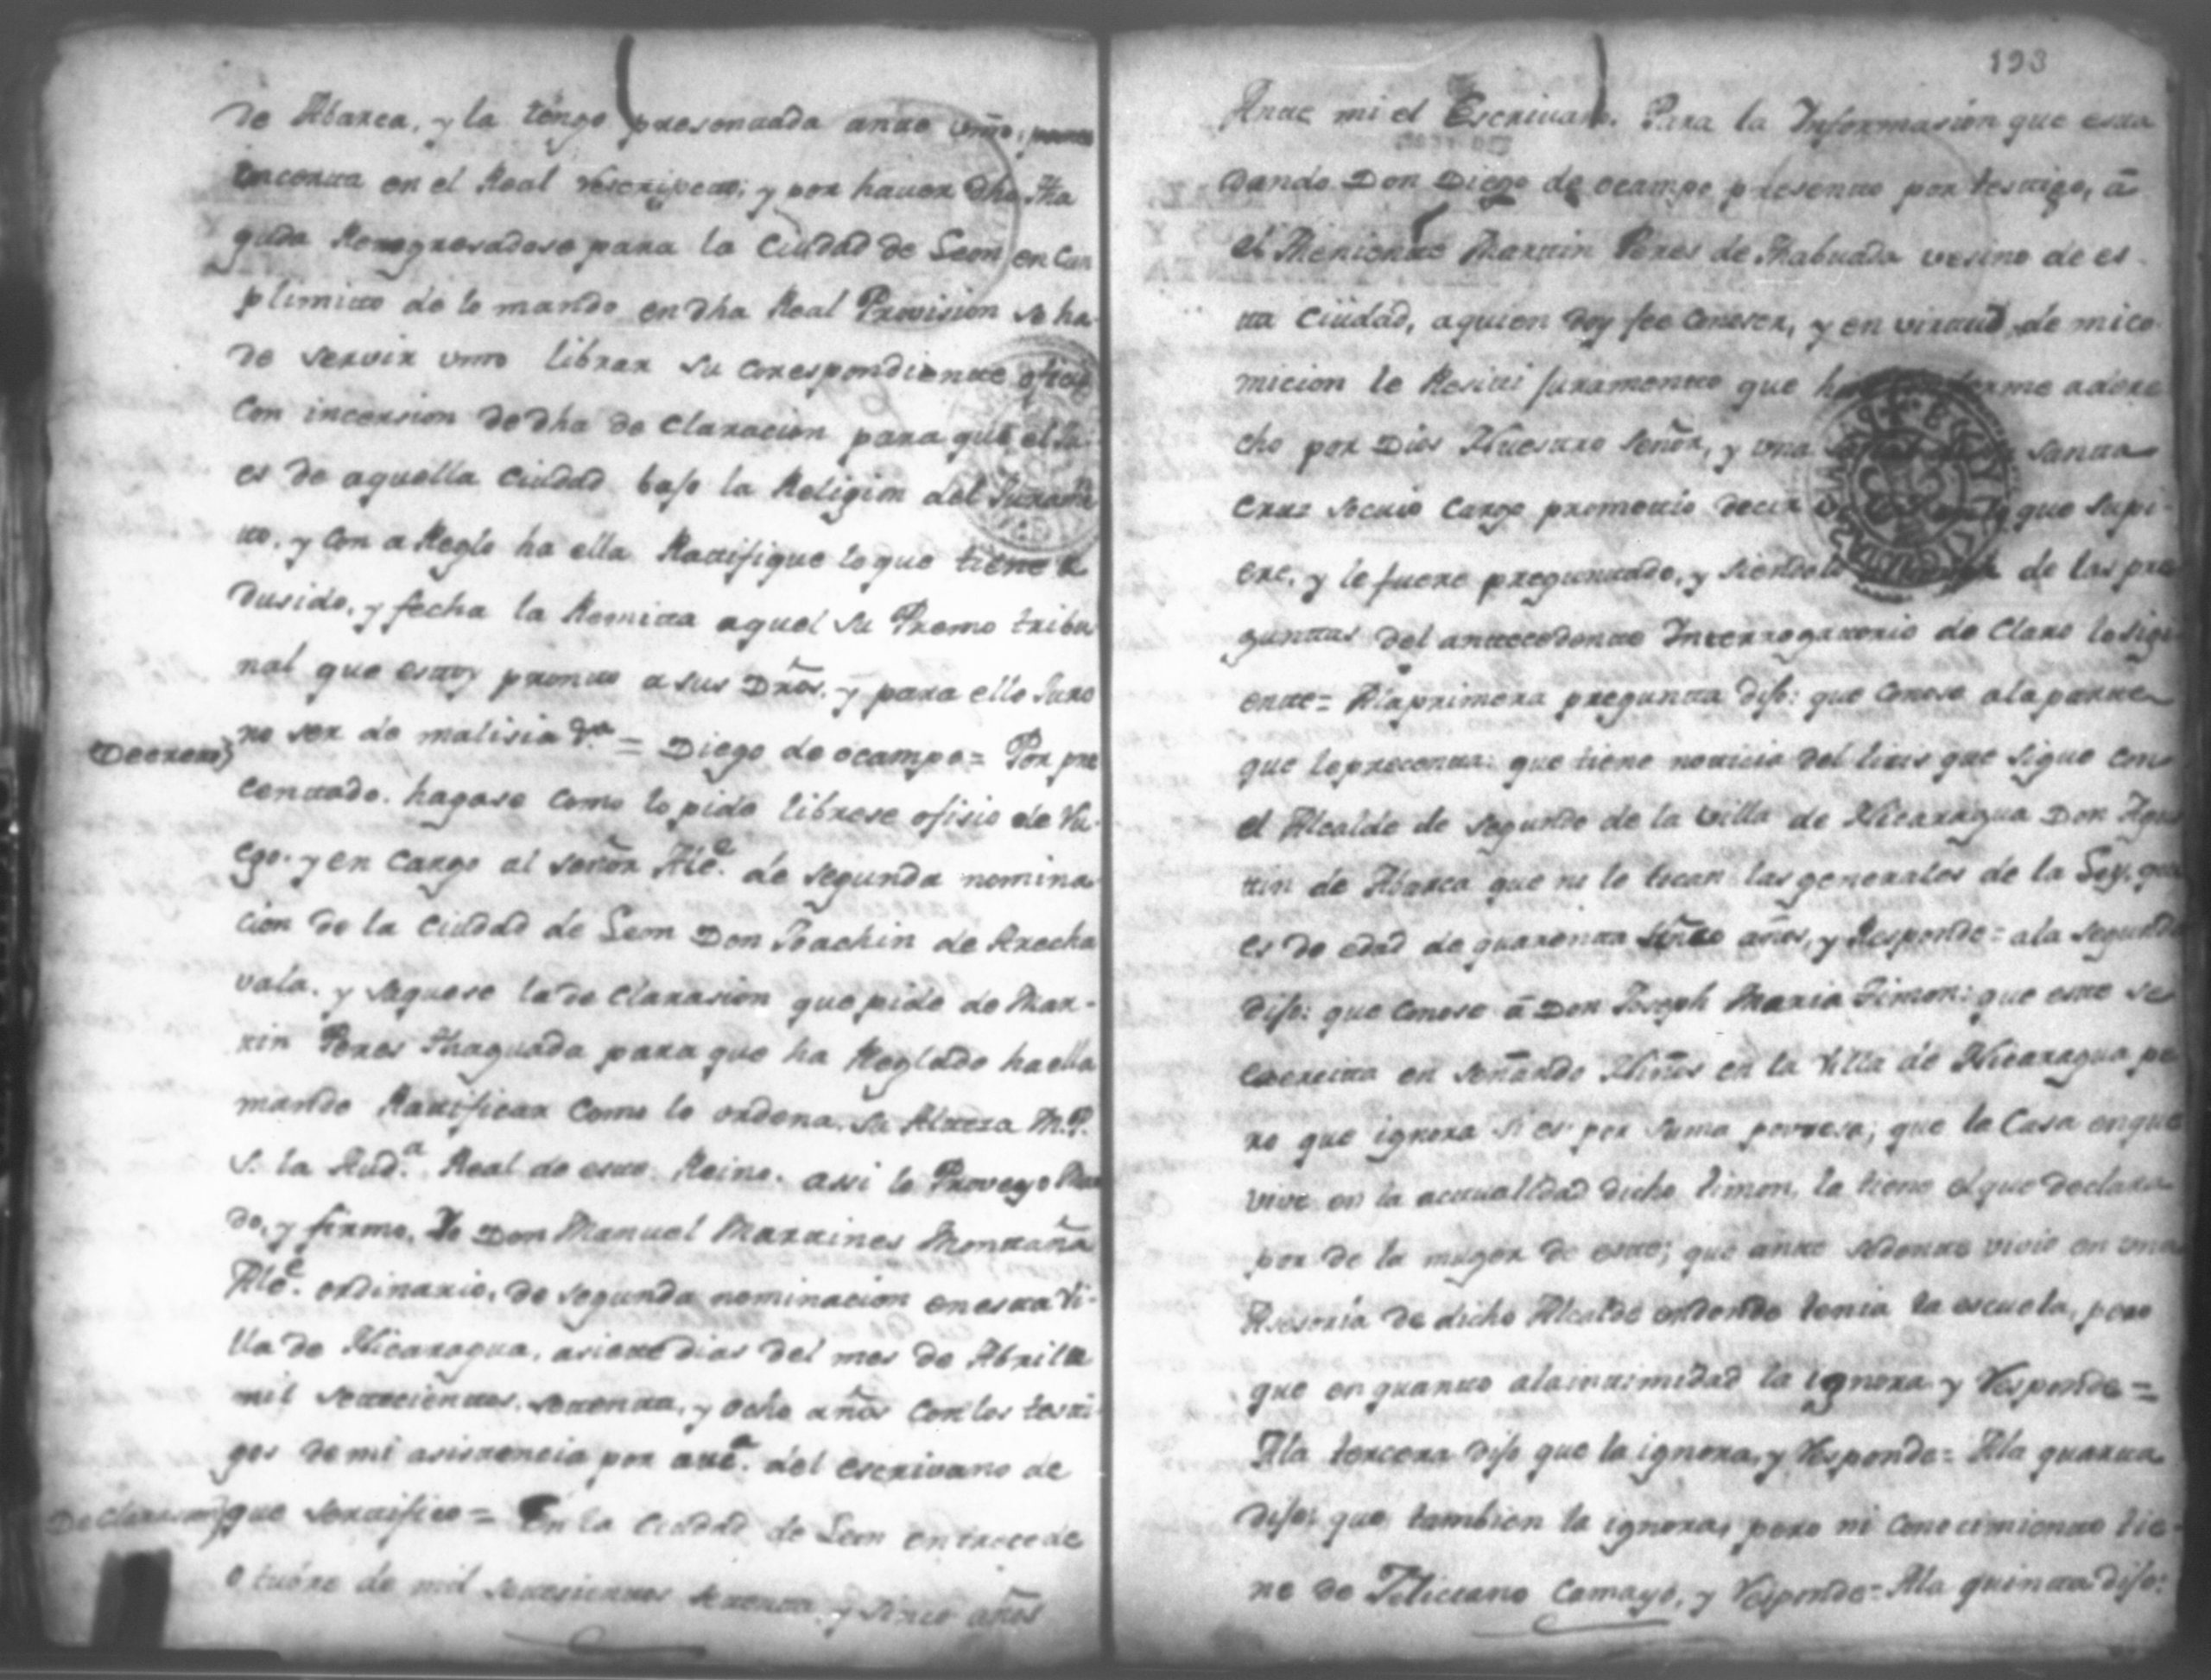 de Abarca, y la tengo presentada ante vmd;
incerta en el Real Rescripto; y por haver dho Tha
guda Retrogresadose para la Ciudad de Leon en Cun
plimitto de lo mando en dha Real Provision se ha-
de servir vmd librar su corespondiente ofisio
Con incersion de dha de Claracion para que el Ju-
es de aquella Ciudad bajo la Religion del Juram
tto. y con a Reglo ha ella Rattifique lo que tiene de
dusido, y fecha la Remitta aquel su Premo tribu
nal que estoy prontto a sus Dros. y para ello Juro
Decreto) no ser de malisia &a = Diego de ocampo = Por pre
centtado. hagase Como lo pide librese ofisio de Ru-
ego. y en Cargo al señor Alce. de segunda nomina
cion de la Ciudad de Leon Don Joachin de Arecha
vala. y saquese la de Clarasion que pide de Mar-
tin Peres Thaguada para que ha Reglado ha ella
mande Rattificar Como lo ordena su Alteza M.P.
S. la Auda. Real de este Reino. assi lo Proveyo Man
do, y firmo, Yo Don Manuel Marttines Monttaña
Alce. ordinario, de segunda nominacion en esta Vi-
lla de Nicaragua, a siette dias del mes de Abril de
mil settecienttos settentta, y ocho años Con los testi-
gos de mi asistencia por auca. del escrivano de
De Clarasion) que serttifico = En la Ciudad de Leon en trece de
Otubre de mil settesienttos settentta y sinco años
193
Antte mi el Escrivano. Para la Informasion que esta
dando Don Diego de ocampo presentto por testtigo, â
el Thenientte Marttin Peres de Thabuada vesino de es-
tta Ciudad, a quien doy fee Conoser, y en virttud de mi co-
micion le Resivi Juramentto que me a dere
cho por Dios Nuestro señor, y una santta
Cruz socuio Cargo promettio decir que supi-
ere, y le fuere preguntado, y siendole de las pre
guntas del anttecedentte Interrogattorio de Claro lo sigi
entte = A la primera preguntta dijo: que Conose a la partte
que lo precentta: que tiene notticia del litis que sigue Con
el Alcalde de segundo de la villa de Nicaragua Don Agus
ttin de Abarca que no le tocan las generales de la Ley. que
es de edad de quarentta años, y Responde = a la segunda
dijo: que Conose â Don Joseph Maria Timon: que este se
exercitta en señando Niños en la Villa de Nicaragua pe
ro que ignora si es por suma povresa; que la Casa en que
vive en la acttualidad dicho Timon, la tiene el que declara
por de la muger de este; que antte sedentte vivio en una
Asesoria de dicho Alcalde en donde tenia la escuela, pero
que en quantto a la inttimidad la ignora y Responde =
A la tercera dijo que la ignora, y Responde = A la quartta
dijo: que tambien la ignora, pero ni Conocimientto tie-
ne de Feliciano Camayo, y Responde = A la quintta dijo: